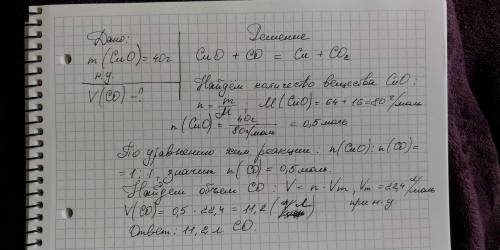 Дано:
m(CuO)=40г
н.у
V(CO)-?
Решение
CuO + CO = Cu + CO₂
Найдем количество вещества CuO:
n = m/M, M(CuO) = 64 + 16 = 80 г/моль
n(CuO) = 40г/80г/моль = 0,5 моль
По уравнению хим реакции: n(CuO):n(CO)=
= 1:1, значит n(CO) = 0,5 моль.
Найдем объем CO: V = n·Vm, Vm = 22,4 л/моль
при н.у.
V(CO) = 0,5·22,4 = 11,2 (л)
Ответ: 11,2 л CO.